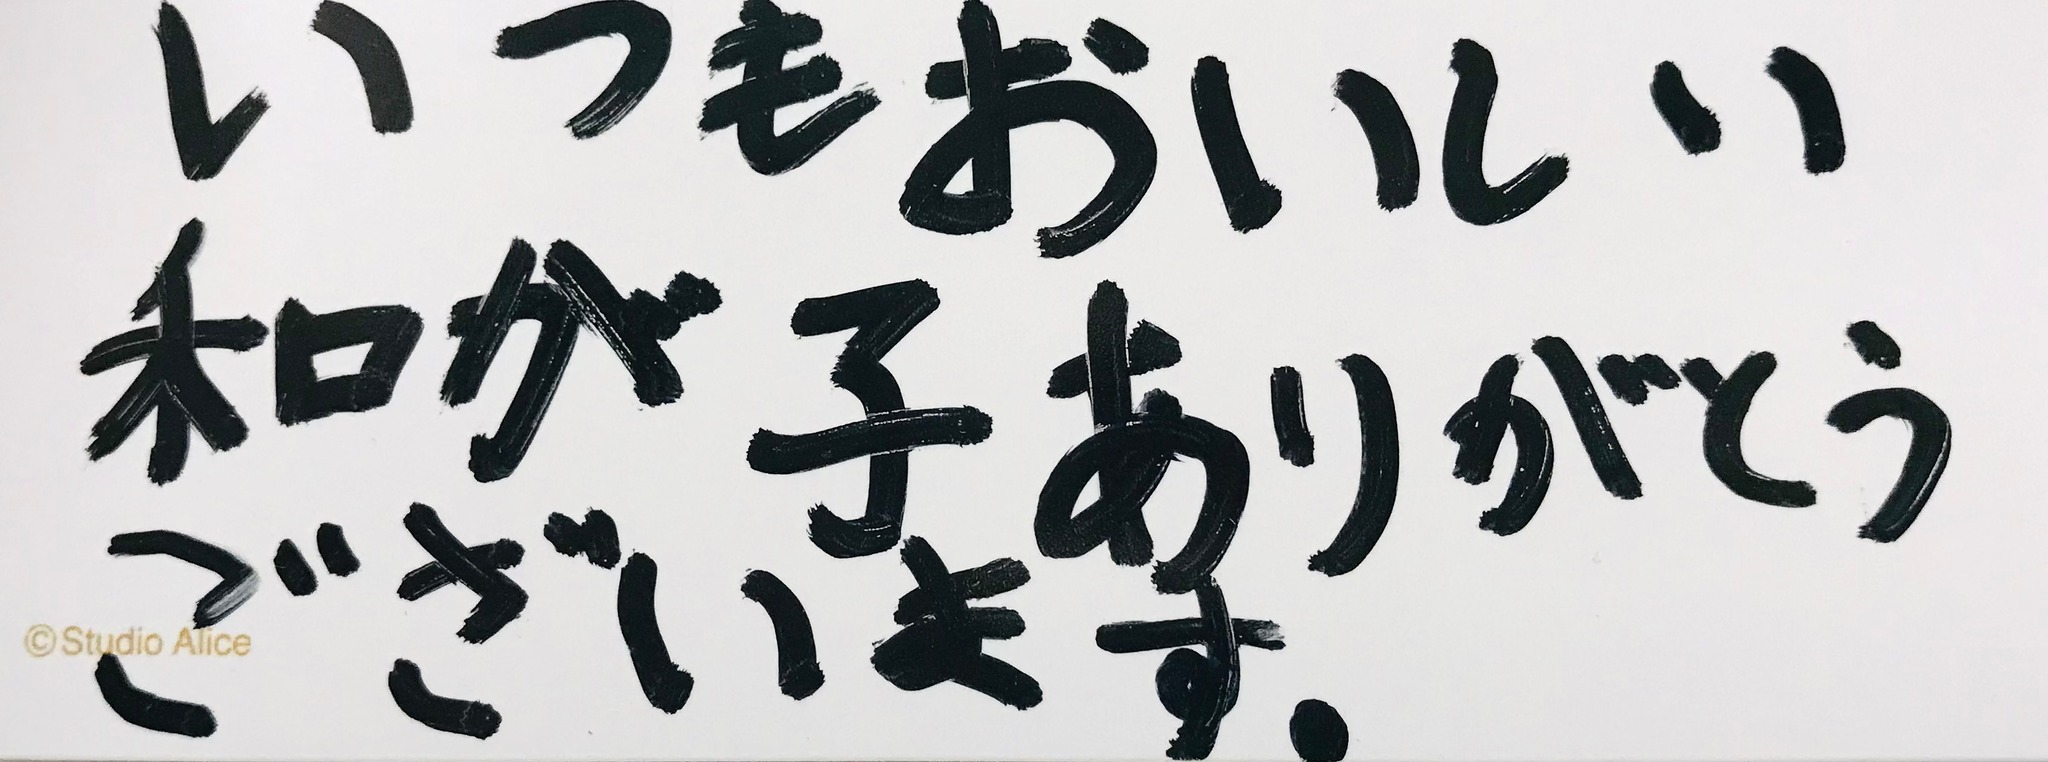 いつもおいしい
和が子ありがとう
ございます.
©Studio Alice